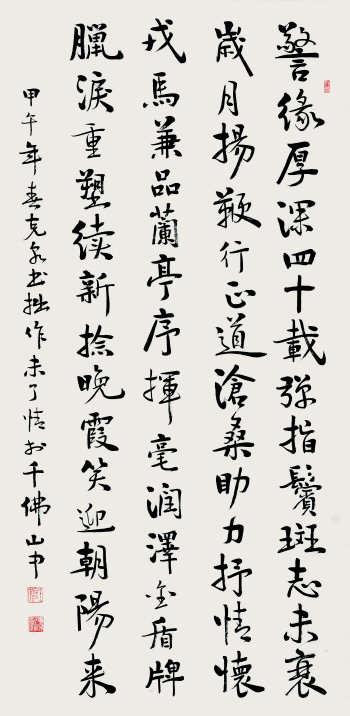 警緣厚深四十載彈指鬢斑志未衰
歲月揚鞭行正道滄桑助力抒情懷
戎馬兼品蘭亭序揮毫潤澤金盾牌
臘淚重塑續新捻晚霞笑迎朝陽来
甲午年春克泉书拙作未了情於千佛山中